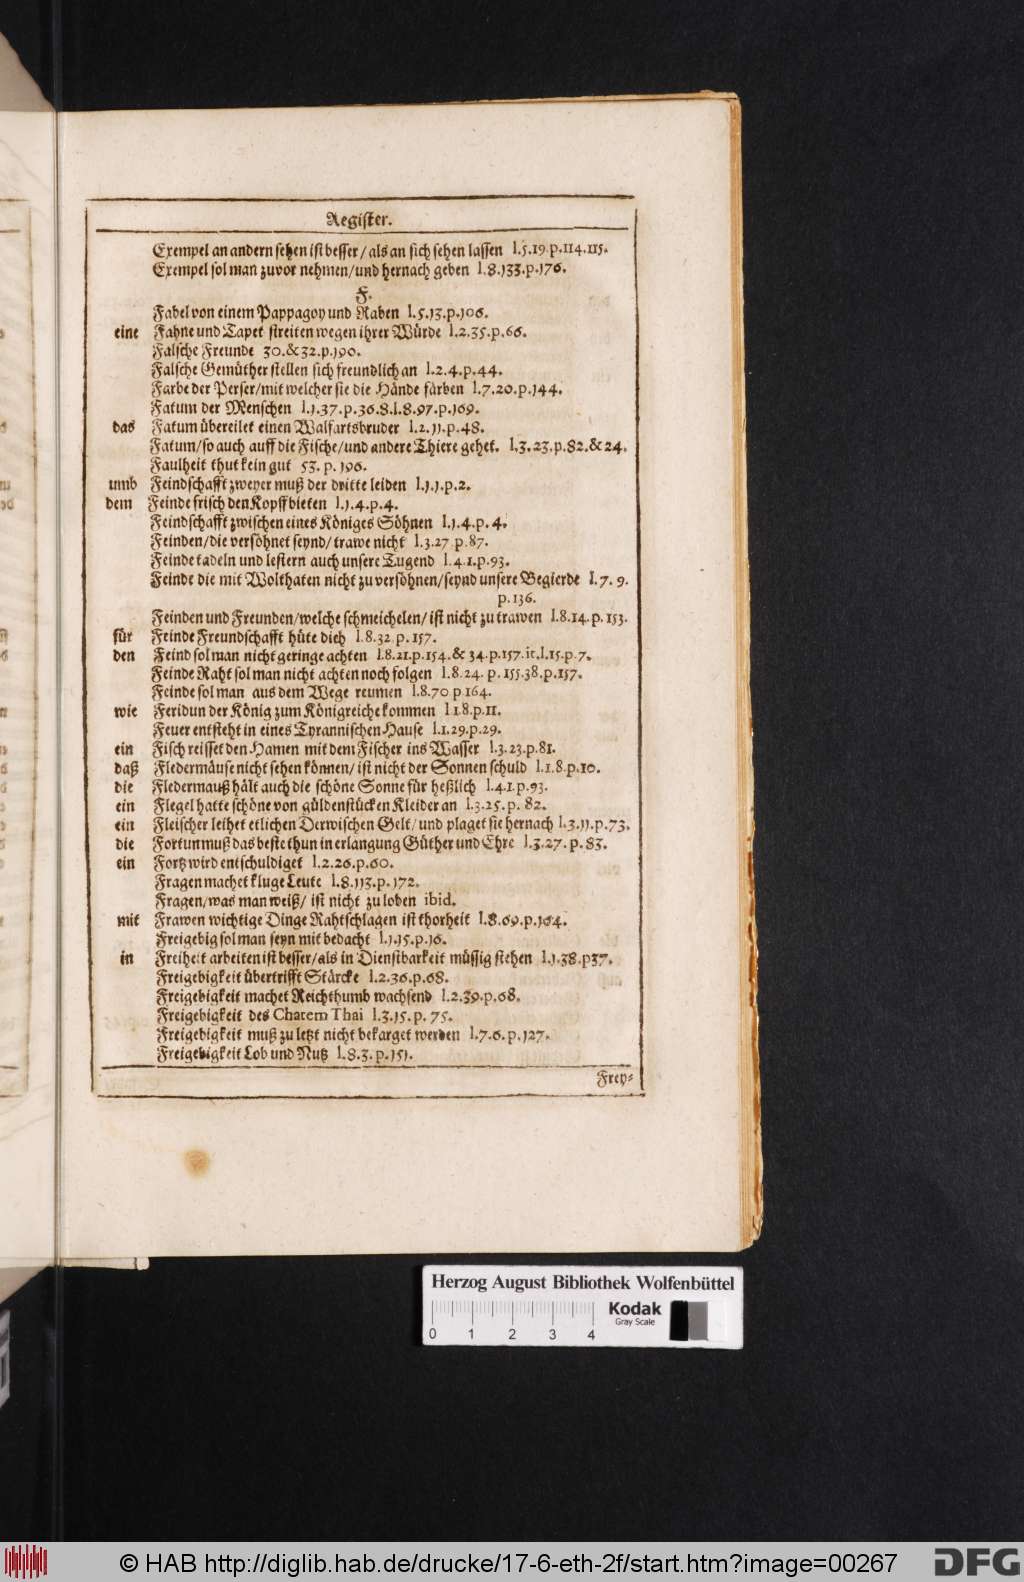 Register.
Exempel an andern sehen ist besser / als an sich sehen lassen l.5.19.p.114.115.
Exempel sol man zuvor nehmen/und hernach geben l.8.133.p.176.
F.
Fabel von einem Pappagoy und Raben l.5.13.p.106.
eine Fahne und Tapet streiten wegen ihrer Würde l.2.35.p.66.
Falsche Freunde 30.&32.p.190.
Falsche Gemüther stellen sich freundlich an l.2.4.p.44.
Farbe der Perser/mit welcher sie die Hände färben l.7.20.p.144.
Fatum der Menschen l.1.37.p.36.8.l.8.97.p.169.
das Fatum übereilet einen Walfartsbruder l.2.11.p.48.
Fatum/so auch auff die Fische/und andere Thiere gehet. l.3.23.p.82.&24.
Faulheit thut kein gut 53.p.196.
umb Feindschafft zweyer muß der dritte leiden l.1.1.p.2.
dem Feinde frisch den Kopff bieten l.1.4.p.4.
Feindschafft zwischen eines Königes Söhnen l.1.4.p.4.
Feinden/die versöhnet seynd/trawe nicht l.3.27.p.87.
Feinde tadeln und lestern auch unsere Tugend l.4.1.p.93.
Feinde die mit Wolthaten nicht zu versöhnen/seynd unsere Begierde l.7.9.
p.136.
Feinden und Freunden/welche schmeichelen/ist nicht zu trawen l.8.14.p.153.
für Feinde Freundschafft hüte dich l.8.32 p.157.
den Feind sol man nicht geringe achten l.8.21.p.154.& 34.p.157.it.l.15.p.7.
Feinde Raht sol man nicht achten noch folgen l.8.24.p.155.38.p.157.
Feinde sol man aus dem Wege reumen l.8.70 p 164.
wie Feridun der König zum Königreiche kommen l 1.8.p.11.
Feuer entsteht in eines Tyrannischen Hause l.1.29.p.29.
ein Fisch reisset den Hamen mit dem Fischer ins Wasser l.3.23.p.81.
daß Fledermäuse nicht sehen können/ist nicht der Sonnen schuld l.1.8.p.10.
die Fledermauß hält auch die schöne Sonne für heßlich l.4.1.p.93.
ein Flegel hatte schöne von güldenstücken Kleider an l.3.25.p.82.
ein Fleischer leihet etlichen Derwischen Gelt/und plaget sie hernach l.3.11.p.73.
die Fortun muß das beste thun in erlangung Güther und Ehre l.3.27.p.83.
ein Fortz wird entschuldiget l.2.26.p.60.
Fragen machet kluge Leute l.8.113.p.172.
Fragen/was man weiß/ist nicht zu loben ibid.
mit Frawen wichtige Dinge Rahtschlagen ist thorheit l.8.69.p.164.
Freigebig sol man seyn mit bedacht l.1.15.p.16.
in Freiheit arbeiten ist besser/als in Dienstbarkeit müssig stehen l.1.38.p37.
Freigebigkeit übertrifft Stärcke l.2.36.p.68.
Freigebigkeit machet Reichthumb wachsend l.2.39.p.68.
Freigebigkeit des Chatem Thai l.3.15.p.75.
Freigebigkeit muß zu letzt nicht bekarget werden l.7.6.p.127.
Freigebigkeit Lob und Nutz l.8.3.p.151.
Frey=
Herzog August Bibliothek Wolfenbüttel
0 1 2 3 4
Kodak
Gray Scale
© HAB http://diglib.hab.de/drucke/17-6-eth-2f/start.htm?image=00267
DFG